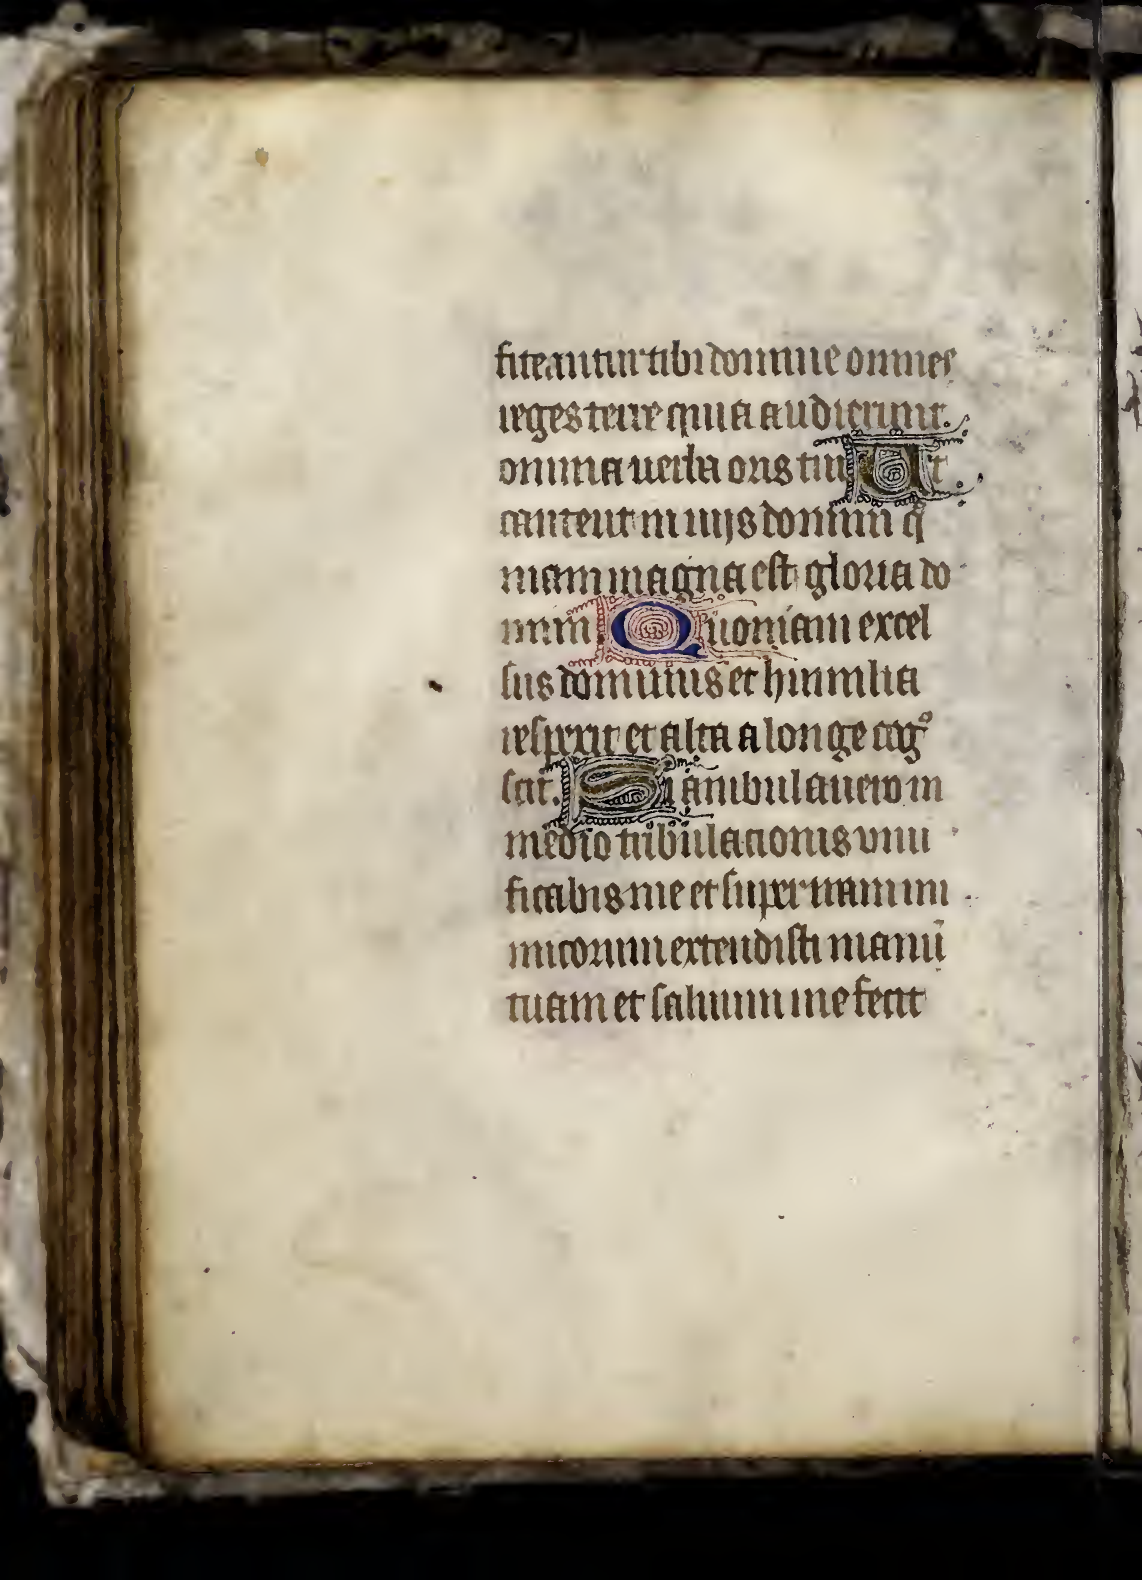 fiteantur tibi domine omnes
reges terre quia audierunt.
omnia uerba oris tui Et
cantent in uijs domini q̄
niam magna est gloria do
mini Quoniam excel
sus dominus et humilia
respexit et alta a longe cog
scit. Si ambulauero in
medio tribulationis viui
ficabis me et super iram ini
micorum extendisti manū
tuam et saluum me fecit